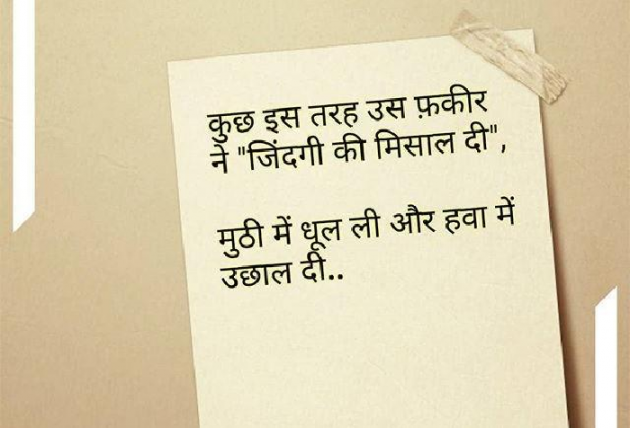 कुछ इस तरह उस फ़कीर
ने "जिंदगी की मिसाल दी",
मुठी में धूल ली और हवा में
उछाल दी..